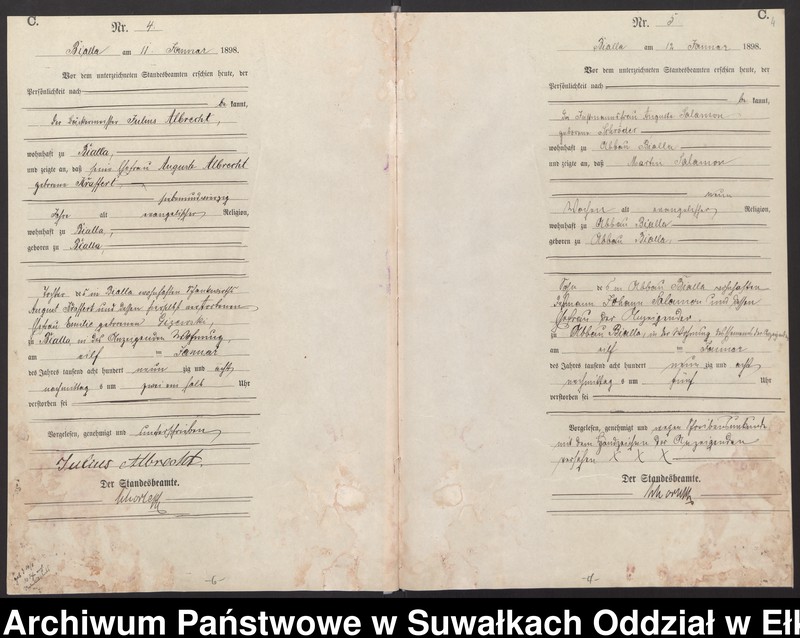 C.
Nr. 4
Bialla am 11 Januar 1898.
Vor dem unterzeichneten Standesbeamten erschien heute, der
Persönlichkeit nach
be kannt,
der Julius Albrecht,
wohnhaft zu Bialla,
und zeigte an, daß seine Ehefrau Auguste Albrecht
geborene Kraffert
siebenundvierzig
Jahre alt evangelischer Religion,
wohnhaft zu Bialla,
geboren zu Bialla,
Tochter des in Bialla wohnhaften
August Kraffert und dessen verstorbenen
Ehefrau Emilie geborenen
zu Bialla, in des Anzeigenden Wohnung,
am elf ten Januar
des Jahres tausend acht hundert neun zig und acht
nachmittag s um zwei ein halb Uhr
verstorben sei
Vorgelesen, genehmigt und unterschrieben
Julius Albrecht.
Der Standesbeamte.
-6-
C.
Nr. 5
Bialla am 12 Januar 1898.
Vor dem unterzeichneten Standesbeamten erschien heute, der
Persönlichkeit nach
be kannt,
die Instmannsfrau Auguste Salamon
geborene Schröder
wohnhaft zu Abbau Bialla
und zeigte an, daß Martin Salamon
neun
Wochen alt evangelischer Religion,
wohnhaft zu Abbau Bialla
geboren zu Abbau Bialla
Sohn des in Abbau Bialla wohnhaften
Instmann Johann Salamon und dessen
Ehefrau der Anzeigenden.
zu Abbau Bialla, in der Wohnung
am elf ten Januar
des Jahres tausend acht hundert neun zig und acht
nachmittag s um fünf Uhr
verstorben sei
Vorgelesen, genehmigt und wegen Schreibensunkunde
mit dem Handzeichen der Anzeigenden
versehen X X X
Der Standesbeamte.
Archiwum Państwowe w Suwałkach Oddział w Ełk